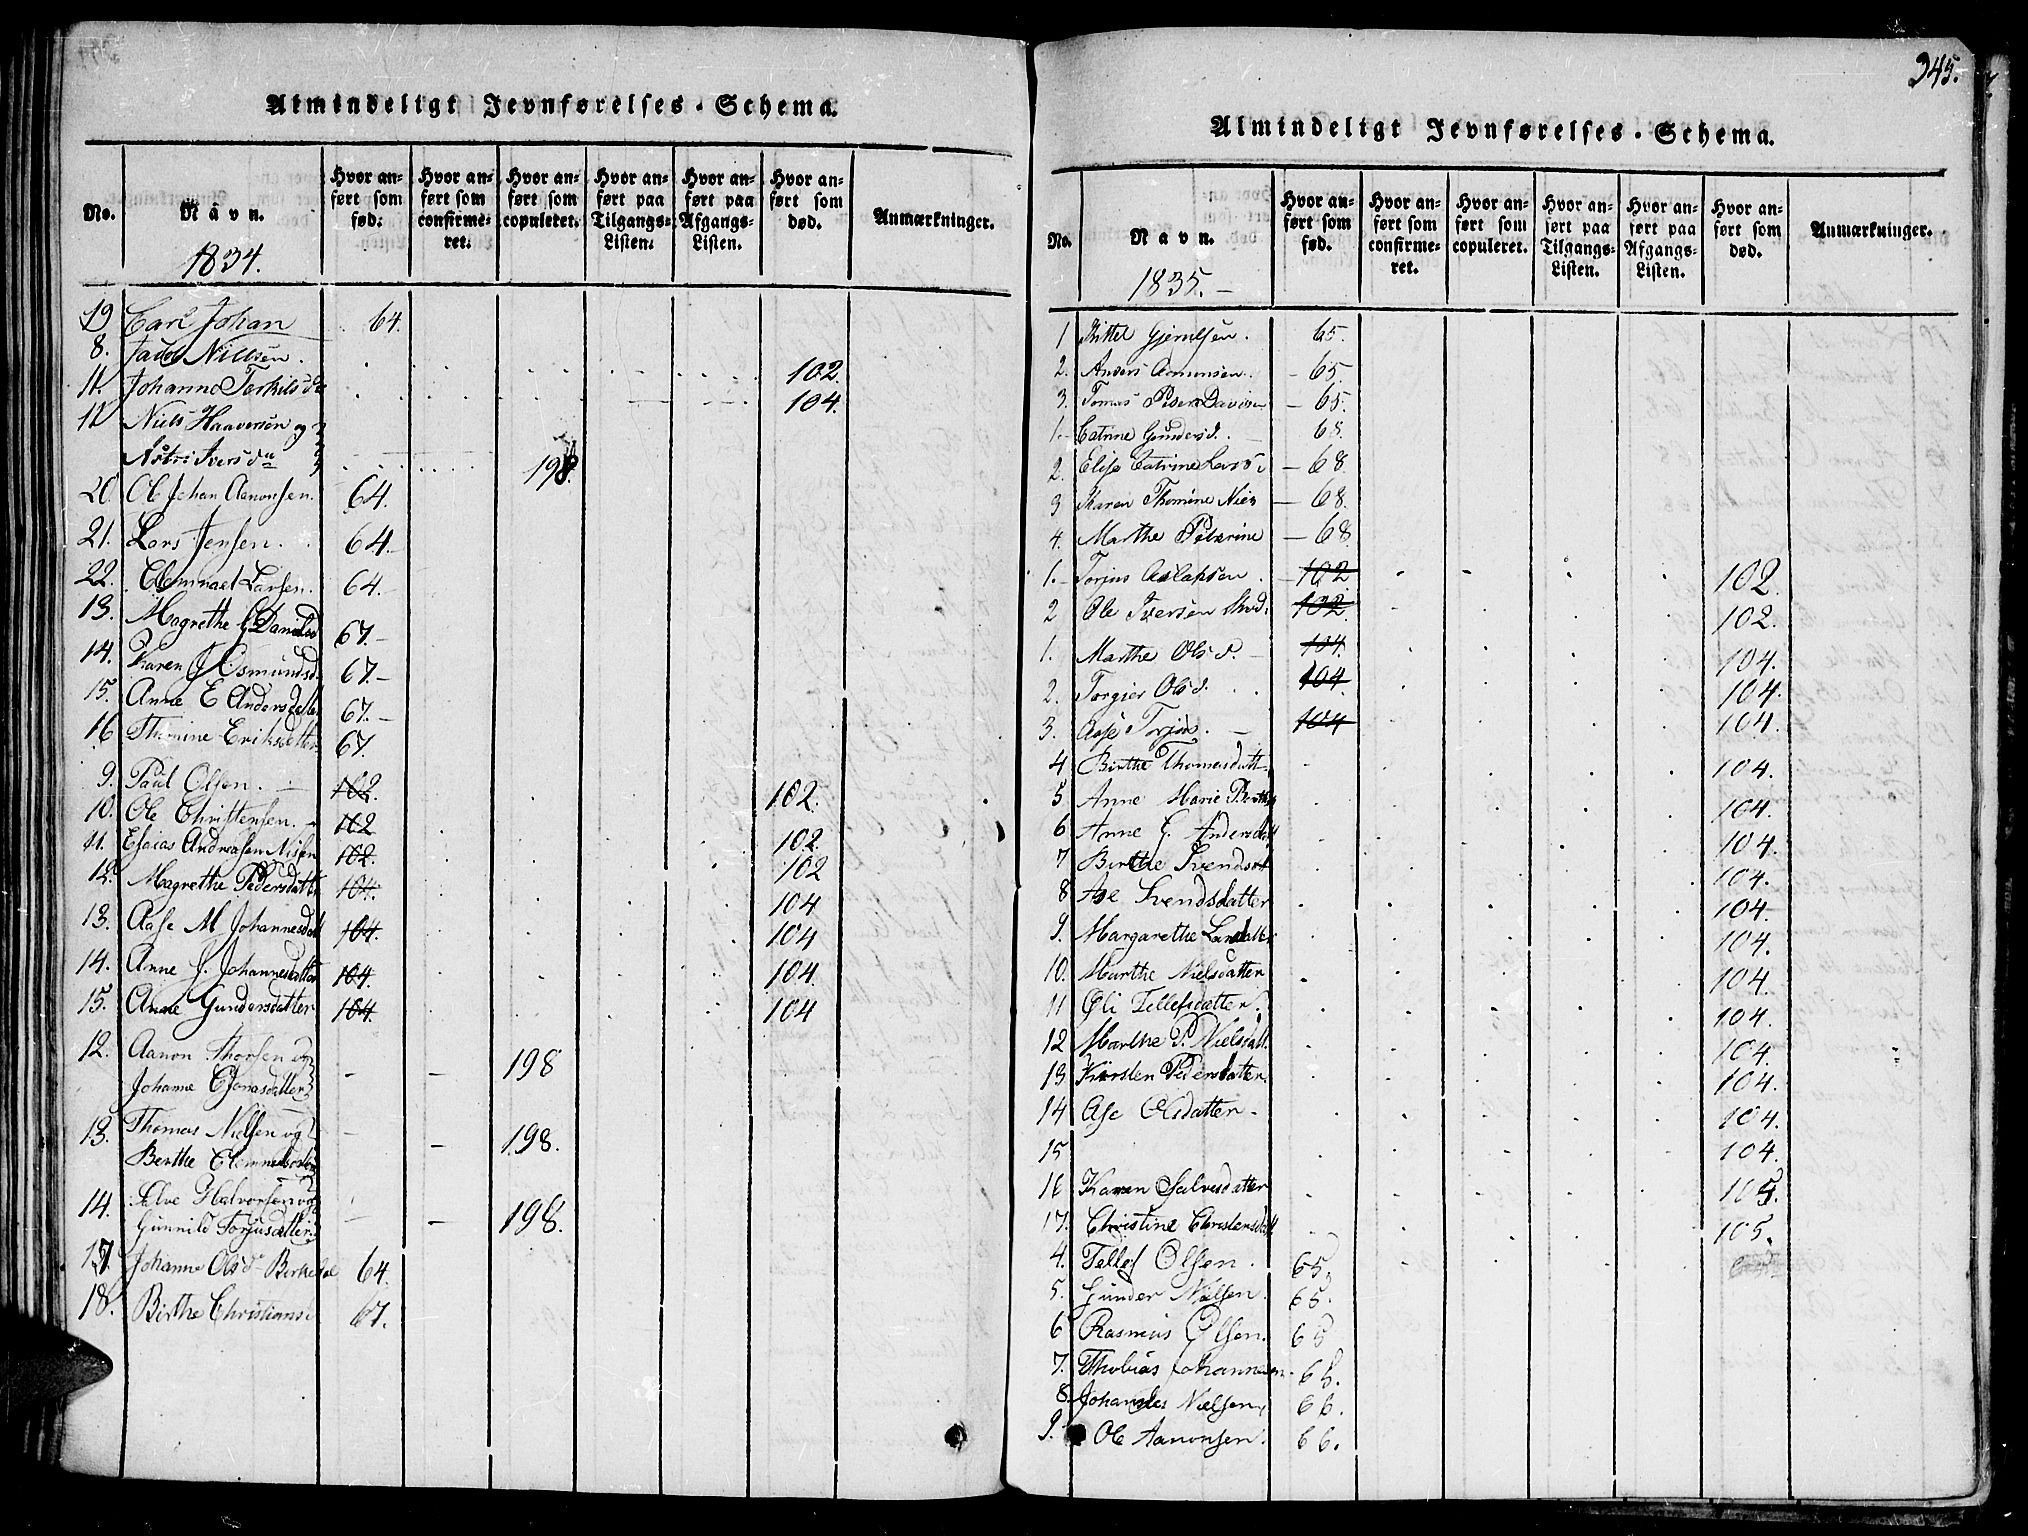 345.
Almindeligt Jevnførelses-Schema.
No.
Navn.
Hvor anført som fød.
Hvor anført som confirmeret.
Hvor anført som copuleret.
Hvor anført paa Tilgangs-Listen.
Hvor anført paa Afgangs-Listen.
Hvor anført som død.
Anmærkninger.
1834.
19 Carl Johan 64.
8. Jacob Nielsen. 102.
11. Johanne Torkilsd 104.
11 Niels Haaversen og
Astri Iversd 198.
20 Ole Johan Aanonsen. 64.
21. Lars Jensen. 64.
22. Clemmet Larsen. 64.
13. Magrethe G Danielsd 67.
14. Karen J Osmundsd. 67.
15. Anne E Andersdatter 67.
16 Thomine Eriksdatter 67.
9. Paul Olsen. 102. 102.
10. Ole Christensen. 102 102.
11. Esaias Andreasen 102. 102
12. Magrethe Pedersdatter 104. 104
13. Aase M Johannesdatt 104. 104
14. Anne J. Johannesdatter 104. 104.
15. Anne Gundersdatter 104. 104
12. Aanon Thorsen og
Johanne Jonasdatter 198
13. Thomas Nielsen og
Berthe Clemmetsdatter 198.
14. Salve Halvorsen og
Gunnild Torjusdatter 198.
17. Johanne Olsd Birkedal 64.
18. Birthe Christians 67.
Almindeligt Jevnførelses-Schema.
No.
Navn.
Hvor anført som fød.
Hvor anført som confirmeret.
Hvor anført som copuleret.
Hvor anført paa Tilgangs-Listen.
Hvor anført paa Afgangs-Listen.
Hvor anført som død.
Anmærkninger.
1835.
1 Kittel Gjerulsen. 65.
2. Anders Aamunsen. 65
3. Tomas Peder Davidsen 65.
1. Catrine Gundersd. 68.
2. Elise Catrine Larsd 68.
3 Karen Thomine Niels 68.
4. Marthe Petrine 68
1. Torjus Aslaksen. 102 102.
2 Ole Iversen 102. 102.
1. Marthe Olsd. 104 104.
2. Torgier Olsd. 104. 104.
3. Aase Torjus. 104 104.
4 Birthe Thomasdatt 104.
5 Anne Marie Berthe 104.
6 Anne G. Andersdatt 104.
7 Birthe Svendsd 104.
8 Ase Svendsdatter 104.
9. Margarethe Larsdatter 104.
10. Marthe Nielsdatter 104.
11 Oli Tellefsdatter. 104.
12 Marthe P. Nielsdatt. 104.
13 Kirsten Pedersdatter. 104.
14 Ase Olsdatter. 104.
15 104.
16 Karen Salvesdatter 105.
17. Christine Christensdatt 105.
4. Tellef Olsen. 65.
5. Gunder Nielsen. 65.
6 Rasmus Olsen. 65
7. Thobias Johannesen. 66.
8. Johannes Nielsen 66.
9. Ole Aanonsen. 66.